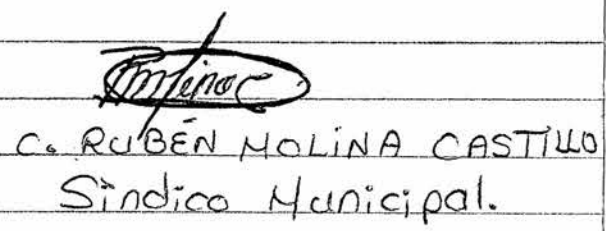 C. RUBÉN MOLINA CASTILLO
Síndico Municipal.